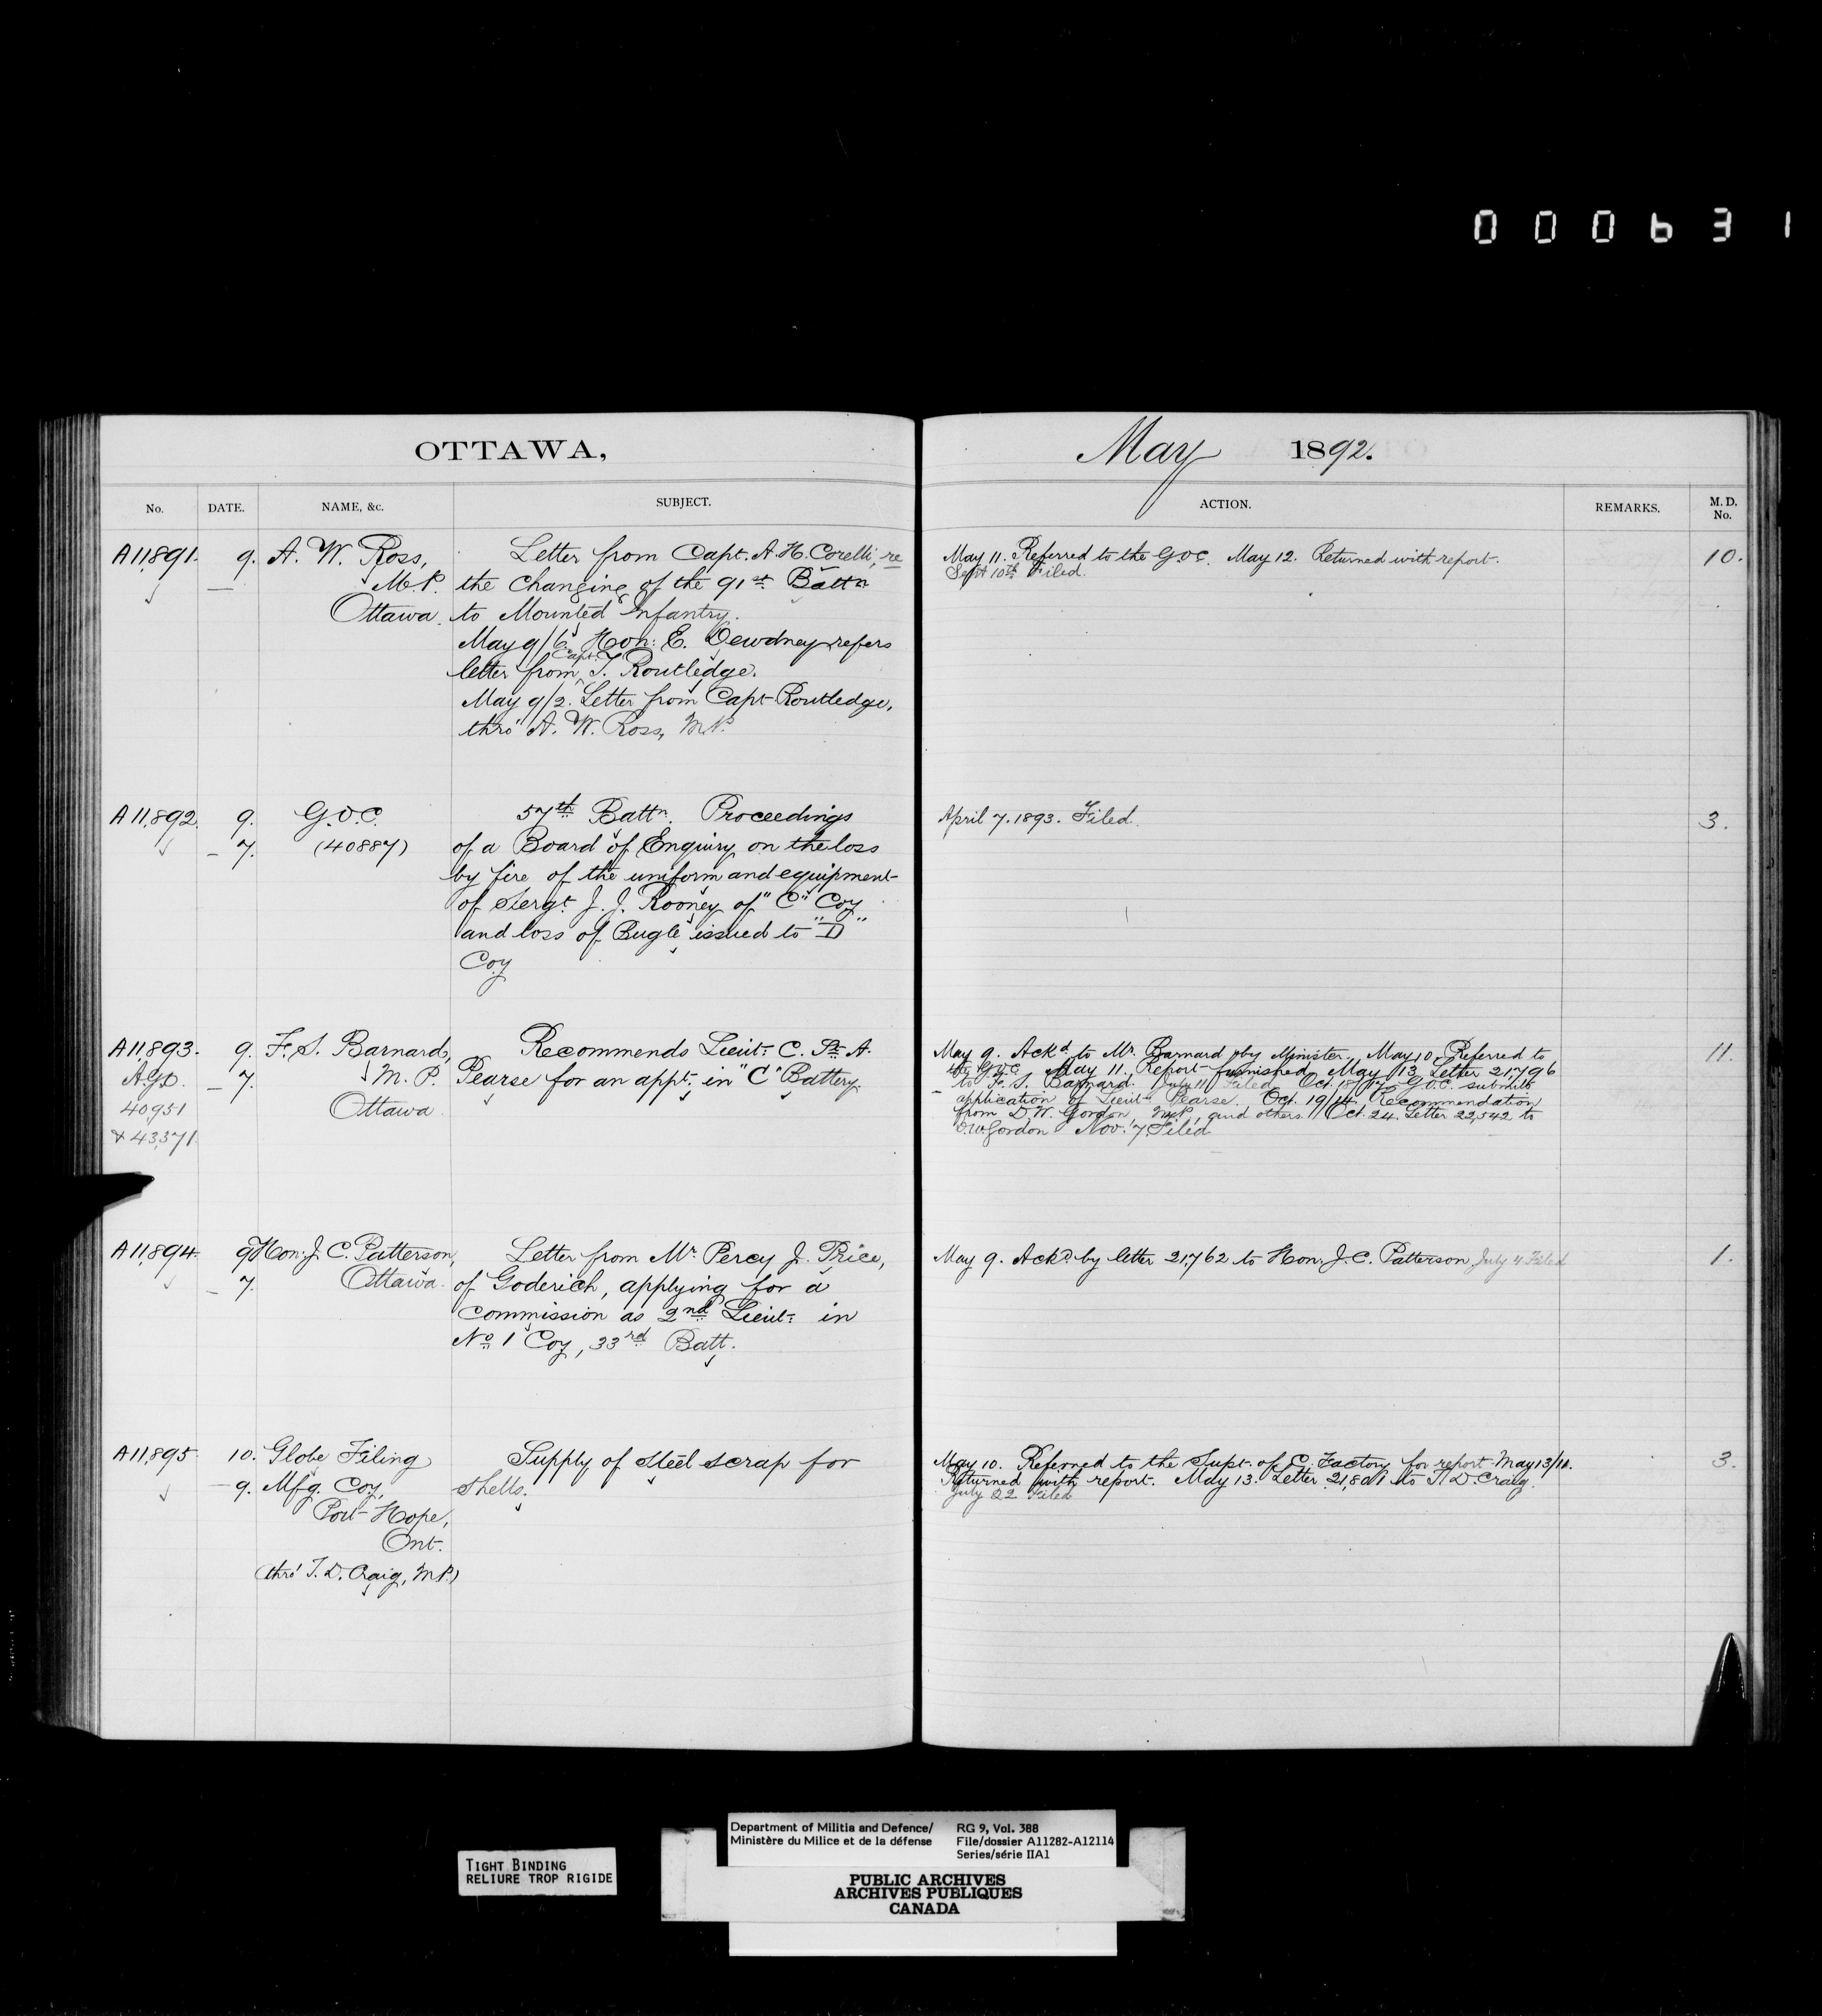 000631
OTTAWA,
May 1892.
No. DATE. NAME, &c. SUBJECT. ACTION. REMARKS. M.D. No.
A11,891. 9. A. W. Ross, Letter from Capt. A. H. Corelli, re
— M.P. the Changing of the 91st Battn
Ottawa. to Mounted Infantry.
May 9/6. Hon: E. Dewdney refers
letter from Capt. T. Routledge.
May 9/2. Letter from Capt Routledge,
thro' A. W. Ross, M.P.
May 11. Referred to the G.O.C. May 12. Returned with report. 10.
Sept 10th Filed.
A11,892. 9. G.O.C. 57th Battn. Proceedings
– 7. (40887) of a Board of Enquiry on the loss
by fire of the uniform and equipment
of Sergt. J. J. Rooney of "C" Coy
and loss of Bugle issued to "D"
Coy
April 7. 1893. Filed. 3.
A11,893. 9. F. S. Barnard, Recommends Lieut. C. St. A.
A.G.D. – 7. M.P. Pearse for an appt. in "C" Battery.
40951 Ottawa
& 43,371.
May 9. Ackd. to Mr. Barnard by Minister. May 10. Referred to 11.
the G.O.C. May 11. Report furnished May 13 Letter 21,796
to F. S. Barnard. July 11 Filed Oct. 18/17 G.O.C. submits
application of Lieut. Pearse. Oct. 19/14. Recommendation
from D. W. Gordon, M.P., and others. Oct. 24. Letter 22,542 to
D.W. Gordon Nov. 7. Filed
A11,894. 9 Hon. J. C. Patterson, Letter from Mr. Percy J. Price,
– 7. Ottawa. of Goderich, applying for a
commission as 2nd Lieut. in
No. 1 Coy, 33rd Batt.
May 9. Ackd. by letter 21,762 to Hon. J. C. Patterson July 4 Filed 1.
A11,895. 10. Globe Filing Supply of steel scrap for
– 9. Mfg. Coy, shells.
Port Hope,
Ont.
(thro' T. D. Craig, M.P.)
May 10. Referred to the Supt. of C. Factory for report May 13/10. 3.
Returned with report. May 13. Letter 21,801 to T. D. Craig.
July 22 Filed
TIGHT BINDING
RELIURE TROP RIGIDE
Department of Militia and Defence/
Ministère du Milice et de la défense
RG 9, Vol. 388
File/dossier A11282-A12114
Series/série IIA1
PUBLIC ARCHIVES
ARCHIVES PUBLIQUES
CANADA